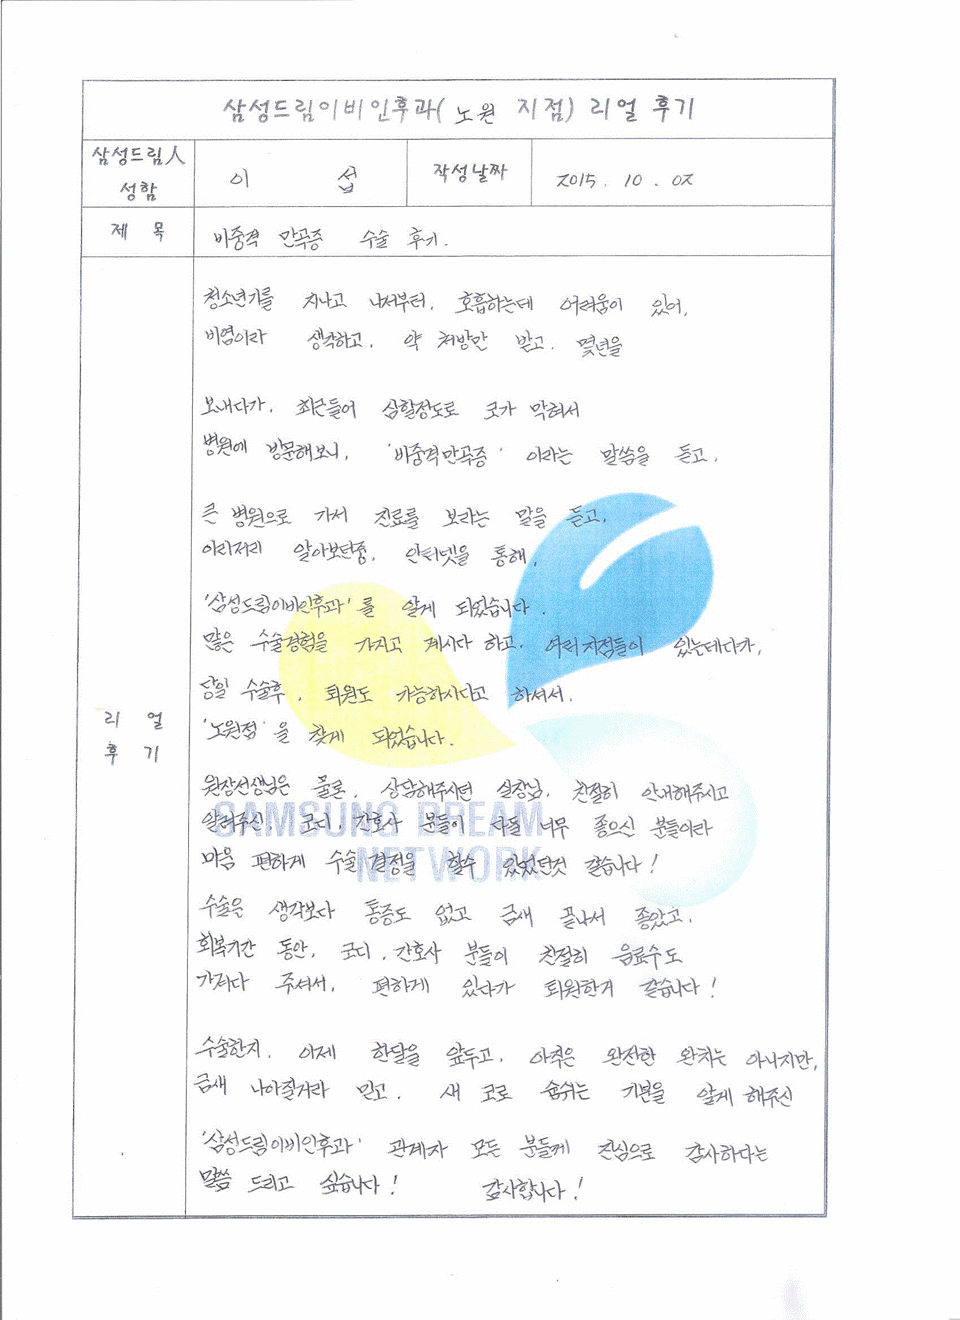 삼성드림이비인후과( 노원 지점) 리얼 후기
삼성드림人 성함
이 섭
작성날짜
2015. 10. 02
제 목
비중격 만곡증 수술 후기.
리 얼
후 기
청소년기를 지나고 나서부터, 호흡하는데 어려움이 있어,
비염이라 생각하고, 약 처방만 받고, 몇년을
보내다가, 최근들어 심할정도로 코가 막혀서
병원에 방문해보니, '비중격만곡증' 이라는 말씀을 듣고,
큰 병원으로 가서 진료를 보라는 말을 듣고,
이리저리 알아보던중, 인터넷을 통해,
'삼성드림이비인후과'를 알게 되었습니다.
많은 수술경험을 가지고 계시다 하고, 여러지점들이 있는데다가,
당일 수술후, 퇴원도 가능하시다고 하셔서,
'노원점'을 찾게 되었습니다.
원장선생님은 물론, 상담해주시던 실장님, 친절히 안내해주시고
알려주신, 코디, 간호사 분들이 다들 너무 좋으신 분들이라
마음 편하게 수술 결정을 할수 있었던것 같습니다!
SAMSUNG DREAM
NETWORK
수술은 생각보다 통증도 없고 금새 끝나서 좋았고,
회복기간 동안, 코디, 간호사 분들이 친절히 음료수도
가져다 주셔서, 편하게 있다가 퇴원한거 같습니다!
수술한지, 이제 한달을 앞두고, 아직은 완전한 완치는 아니지만,
금새 나아질거라 믿고, 새 코로 숨쉬는 기분을 알게 해주신
'삼성드림이비인후과' 관계자 모든 분들께 진심으로 감사하다는
말씀 드리고 싶습니다! 감사합니다!